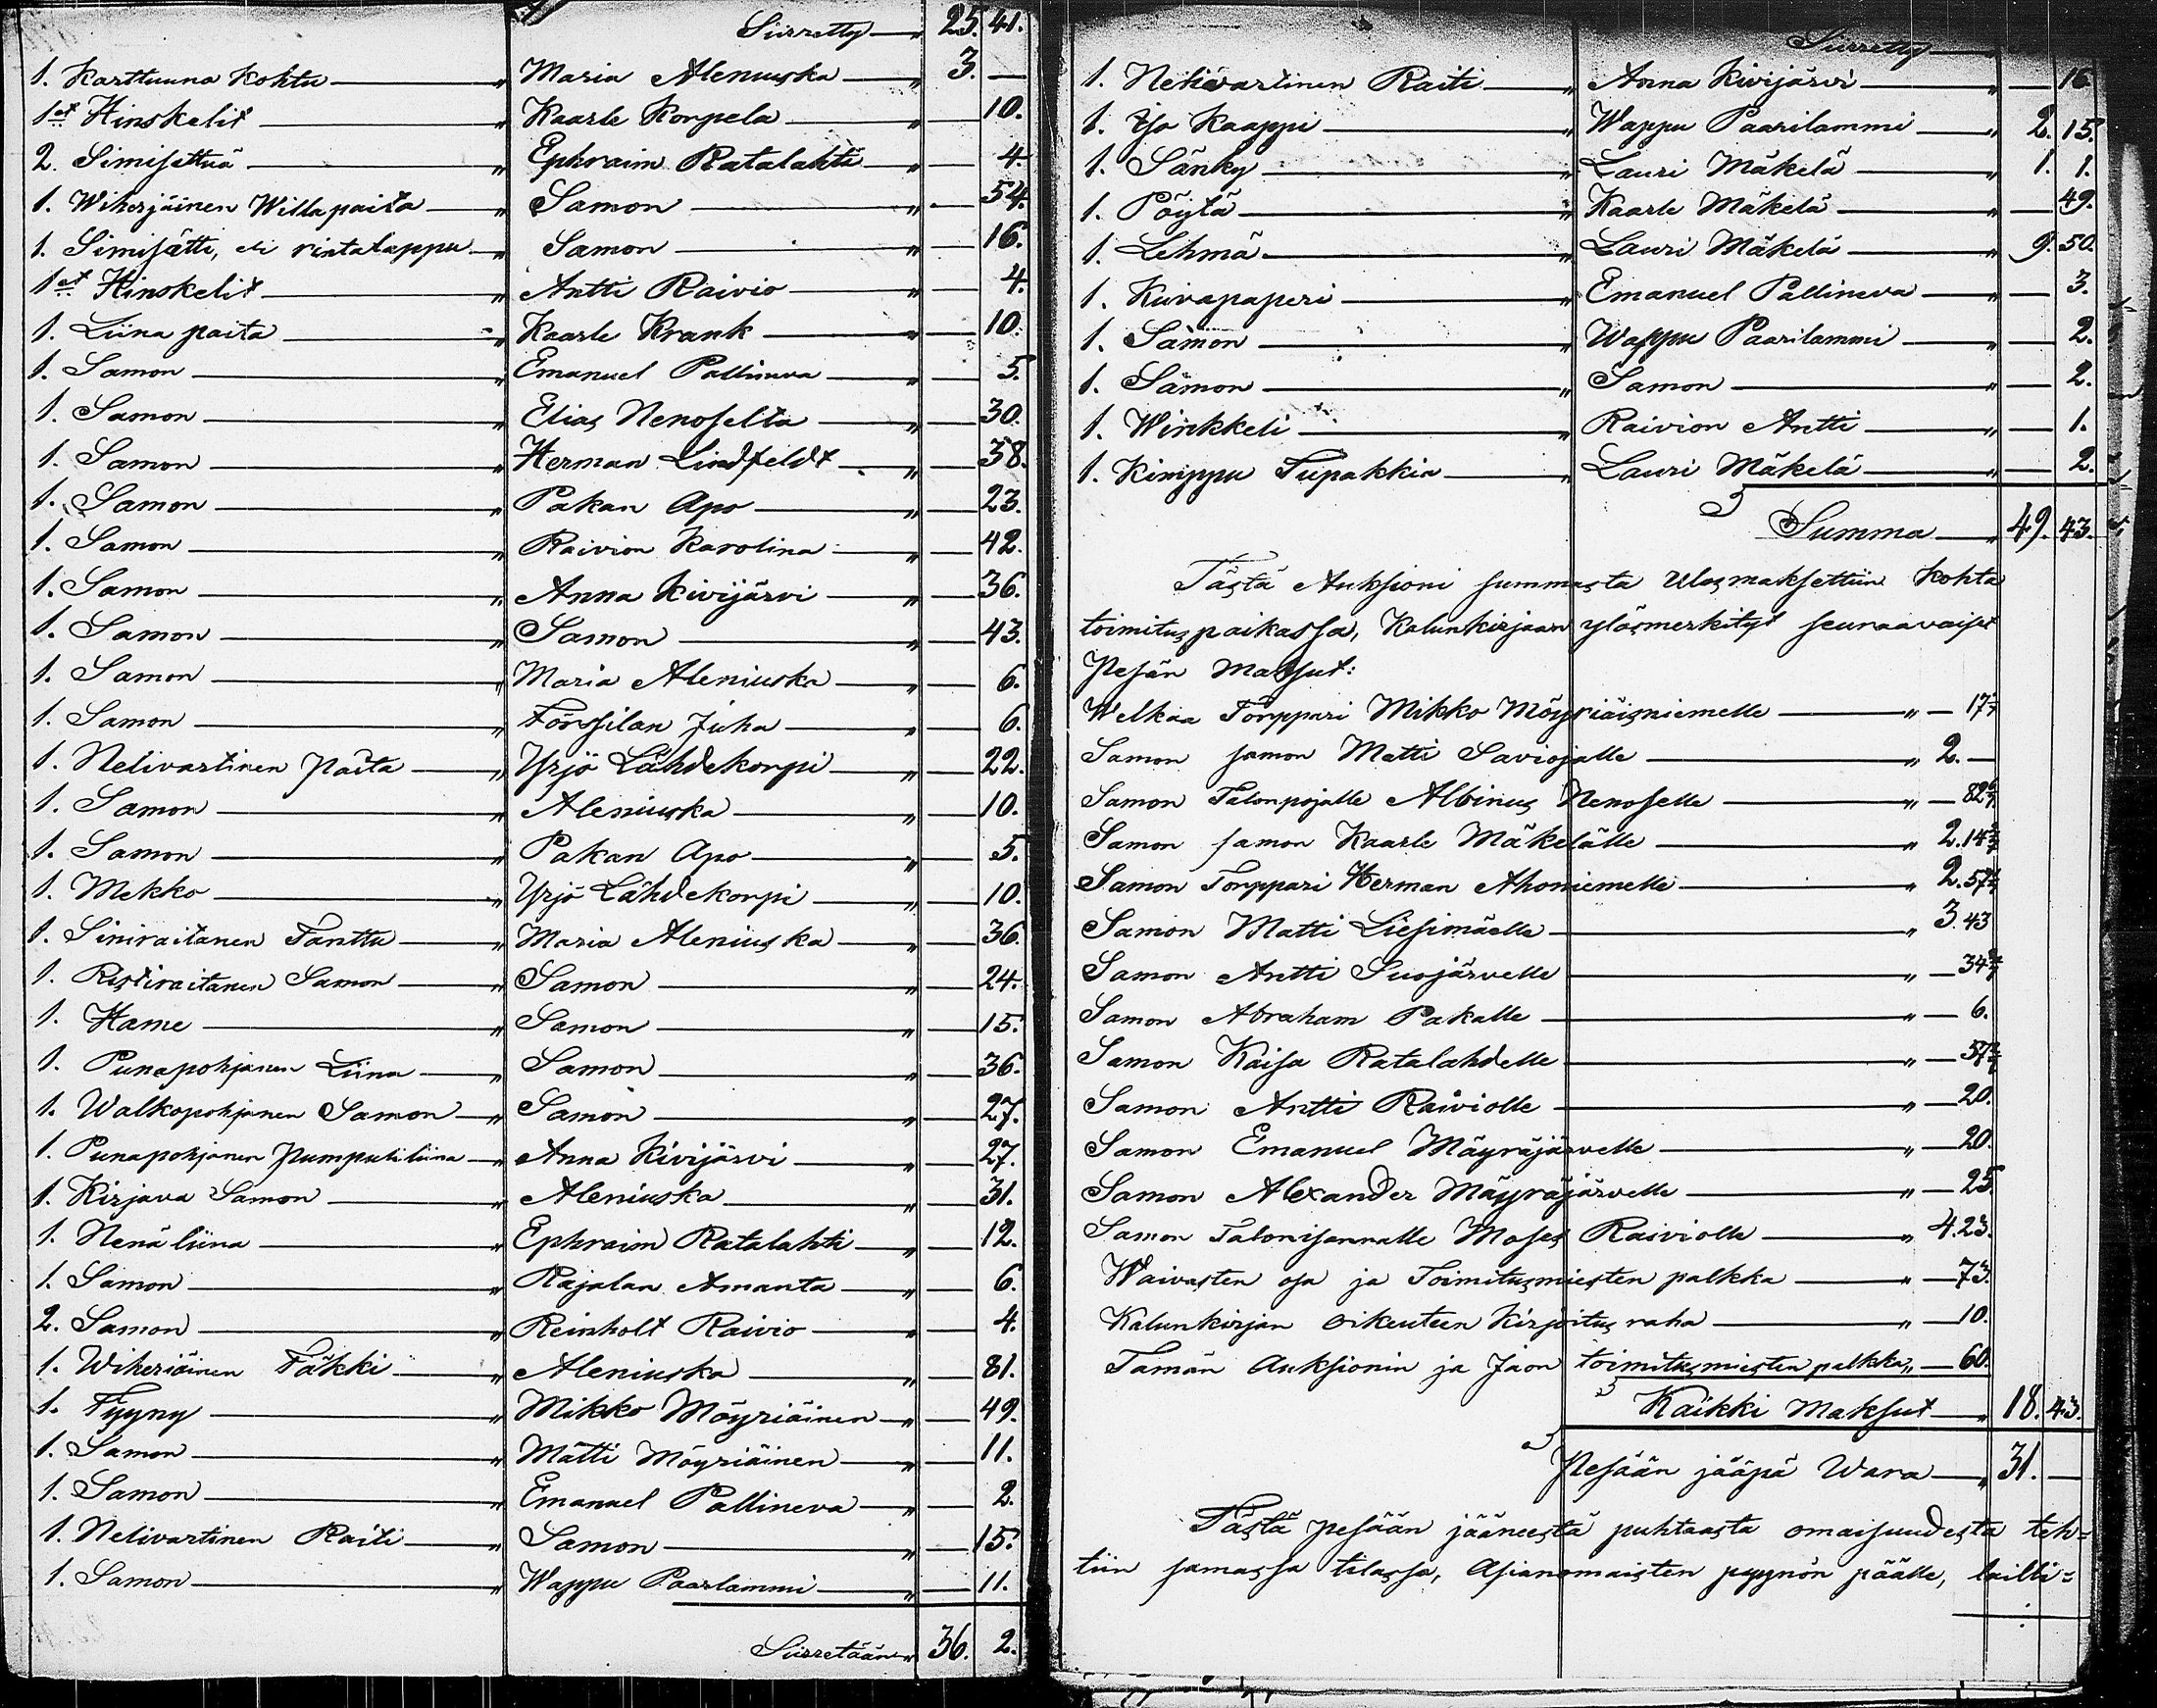 Siirretty 25. 41.
1. Karttuuna Kohtu " Maria Aleniuska " 3. —
1et Hinskelit " Kaarle Korpela " — 10.
2. Simisettiä " Ephraim Ratalahti " — 4.
1. Wiherjäinen Willapaita " Samon " — 54.
1. Simisätti, eli rintalappu " Samon " — 16.
1et Hinskelit " Antti Raivio " — 4.
1. Liina paita " Kaarle Krank " — 10.
1. Samon " Emanuel Pallineva " — 5.
1. Samon " Elias Nenoselta " — 30.
1. Samon " Herman Lindfeldt " — 38.
1. Samon " Pakan Apo " — 23.
1. Samon " Raivion Karolina " — 42.
1. Samon " Anna Kivijärvi " — 36.
1. Samon " Samon " — 43.
1. Samon " Maria Aleniuska " — 6.
1. Samon " Forssilan Juha " — 6.
1. Nelivartinen Paita " Yrjö Lähdekorpi " — 22.
1. Samon " Aleniuska " — 10.
1. Samon " Pakan Apo " — 5.
1. Mekko " Yrjö Lähdekorpi " — 10.
1. Siniraitanen Tanttu " Maria Aleniuska " — 36.
1. Ristiraitanen Samon " Samon " — 24.
1. Hame " Samon " — 15.
1. Punapohjanen Liina " Samon " — 36.
1. Walkopohjanen Samon " Samon " — 27.
1. Punapohjanen Pumpuliliina " Anna Kivijärvi " — 27.
1. Kirjava Samon " Aleniuska " — 31.
1. Nenäliina " Ephraim Ratalahti " — 12.
1. Samon " Rajalan Amanta " — 6.
2. Samon " Reinholt Raivio " — 4.
1. Wiheriäinen Täkki " Aleniuska " — 81.
1. Tyyny " Mikko Möyriäinen " — 49.
1. Samon " Matti Möyriäinen " — 11.
1. Samon " Emanuel Pallineva " — 2.
1. Nelivartinen Raiti " Samon " — 15.
1. Samon " Wappu Paarlammi " — 11.
Siirretään " 36. 2.
Siirretty
1. Nelivartinen Raiti " Anna Kivijärvi " — 16.
1. Iso Kaappi " Wappu Paarilammi " 2. 15.
1. Sänky " Lauri Mäkelä " 1. 1.
1. Pöytä " Kaarle Mäkelä " — 49.
1. Lehmä " Lauri Mäkelä " 9. 50.
1. Kuvapaperi " Emanuel Pallineva " — 3.
1. Samon " Wappu Paarilammi " — 2.
1. Samon " Samon " — 2.
1. Winkkeli " Raivion Antti " — 1.
1. Kimppu Tupakkia " Lauri Mäkelä " — 2.
Summa " 49. 43.
Tästä Auksioni summasta Ulosmaksettiin kohta
toimituspaikassa, Kalunkirjaan ylösmerkityt seuraavaiset
Pesän Maksut:
Welkaa Torppari Mikko Möyriäisniemelle " — 17 1/7
Samon samon Matti Saviojalle " 2. —
Samon Talonpojalle Albinus Nenoselle " — 82 6/7
Samon samon Kaarle Mäkelälle " 2. 14 2/7
Samon Torppari Herman Ahoniemelle " 2. 57 1/7
Samon Matti Liesimäelle " 3. 43
Samon Antti Suojärvelle " — 34 2/7
Samon Abraham Pakalle " — 6.
Samon Kaisa Ratalahdelle " — 57 1/7
Samon Antti Raiviolle " — 20.
Samon Emanuel Mäyräjärvelle " — 20.
Samon Alexander Mäyräjärvelle " — 25.
Samon Talonisannalle Moses Raiviolle " 4. 23.
Waivasten osa ja Toimitusmiesten palkka " — 73.
Kalunkirjan oikeuteen Kirjoitus raha " — 10.
Tämän Auksionin ja Jaon toimitusmiesten palkka " — 60.
Kaikki Maksut " 18. 43.
Pesään jääpä Wara " 31. —
Tästä pesään jääneestä puhtaasta omaisuudesta teh=
tiin samassa tilassa, Asianomaisten pyynön päälle, lailli=